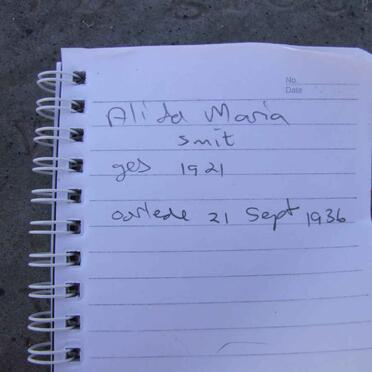 No.
Date
Alida Maria
Smit
ges 1921
oorlede 21 Sept 1936